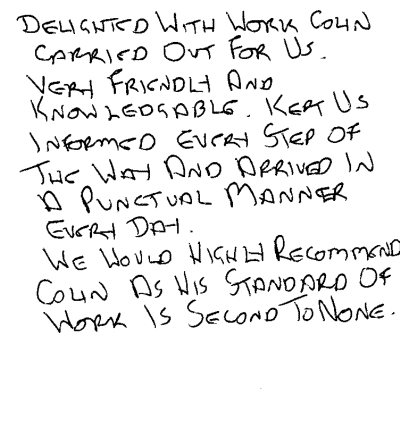 DELIGHTED WITH WORK COLIN
CARRIED OUT FOR US.
VERY FRIENDLY AND
KNOWLEDGABLE. KEPT US
INFORMED EVERY STEP OF
THE WAY AND ARRIVED IN
A PUNCTUAL MANNER
EVERY DAY.
WE WOULD HIGHLY RECOMMEND
COLIN AS HIS STANDARD OF
WORK IS SECOND TO NONE.